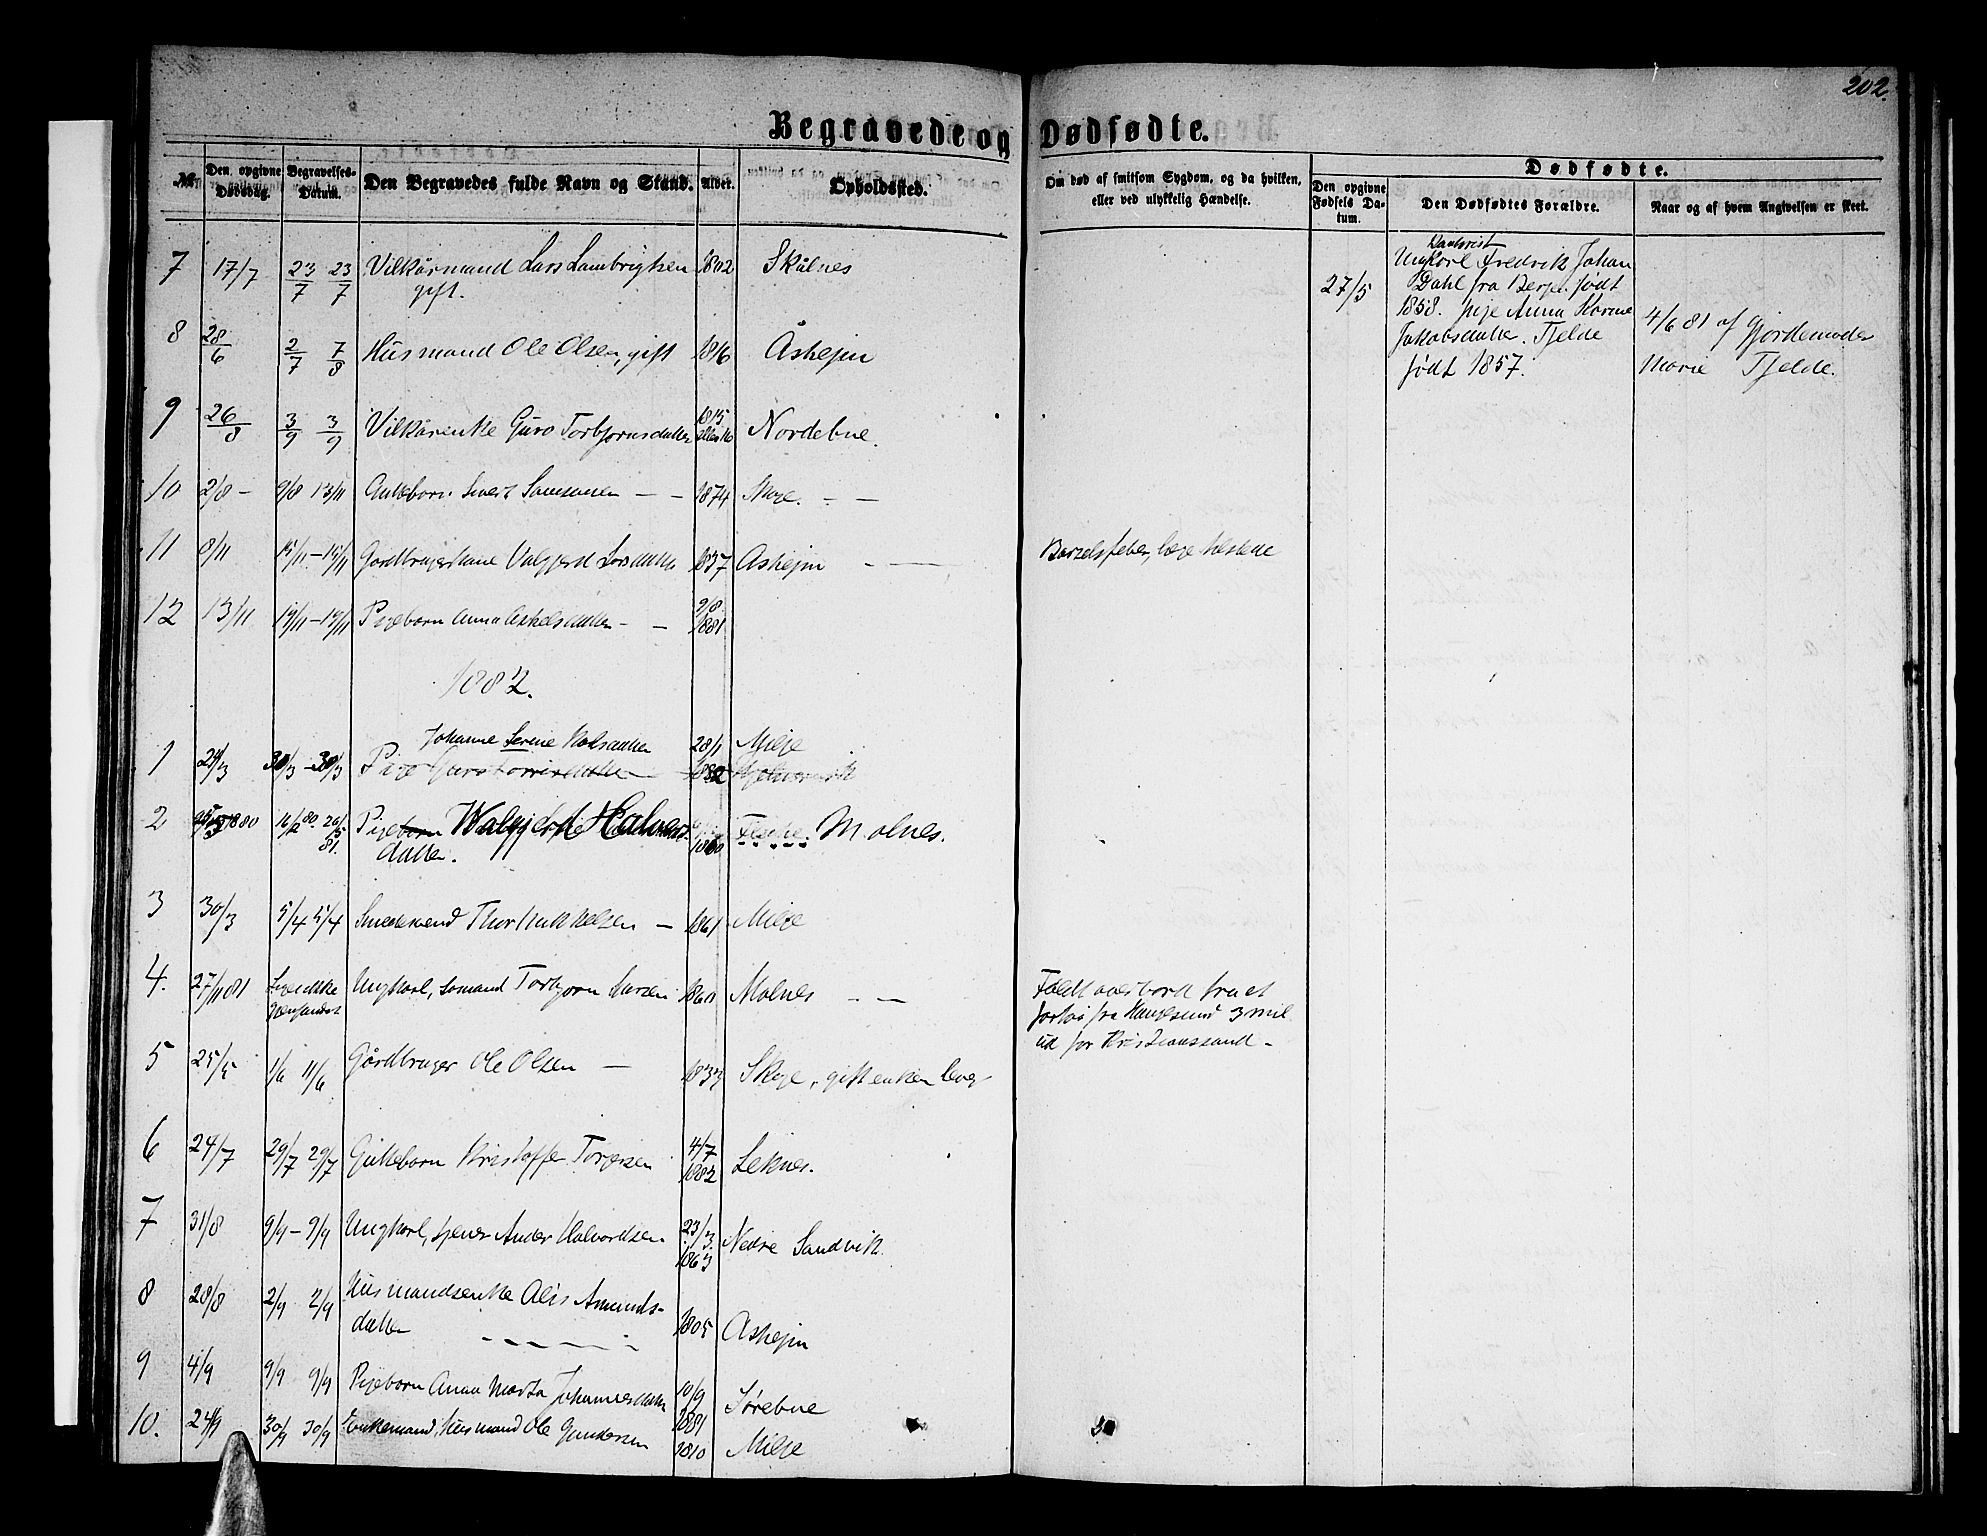 202.
Begravede og Dødfødte.
№
Den opgivne Dødsdag.
Begravelses-Datum.
Den Begravedes fulde Navn og Stand.
Alder.
Opholdssted.
Om død af smitsom Sygdom, og da hvilken,
eller ved ulykkelig Hændelse.
Dødfødte.
Den opgivne Fødsels Datum.
Den Dødfødtes Forældre.
Naar og af hvem Angivelsen er skeet.
7 17/7 23/7 23/7 Vilkårmand Lars Lambrigtsen 1802 Skålnes
gift.
27/5
Ungkarl Fredrik Johan
Dahl fra Bergen født
1858. pige Anna Karine
Jakobsdatter. Tjelde
født 1857.
4/6 81 af Gjordemoder
Marie Tjelde.
8 28/6 2/7 7/8 Husmand Ole Olsen, gift 1816 Åshejm
9 26/8 3/9 3/9 Vilkårenke Guro Torbjørnsdatter 1815 eller 16 Nordebue.
10 2/8 - 9/8 13/11 Gutebarn Sivert Samsonsen - - 1874 Moje. - -
11 8/11 15/11 - 15/11 Gårdbrugerkone Valgjerd Larsdatter 1837 Ashejm - - Barselsfeber, læge tilstede
12 13/11 19/11 - 19/11 Pigebarn Anna Askelsdatter - - 9/8 1881
1882.
Johanne Serine Nelsdatter 28/1 Milje
1 24/3 30/3 - 30/3 Pige 1882
2 1880 16/2 80. 26/5 81. Pigebarn Walgjerde Halvards- 1880 Molnes.
datter.
3 30/3 5/4 5/4 Smedsvend Thor Mikkelsen - 1861 Milje
4. 27/11 81 Liget ikke Ungkarl, Sømand Torbjørn Larsen 1860 Molnes - - Faldt overbord fra et
gjenfundet
fartøi fra Haugesund 3 mil
ud for Kristianssand -
5 25/5 1/6 11/6 Gårdbruger Ole Olsen - 1833 Skeje, gift enken lever
6 24/7 29/7 29/7 Gutebarn Kristoffer Torgersen 4/7 1882 Leknes.
7 31/8 9/9 - 9/9 Ungkarl, tjener Ander Halvordsen 23/3 1863 Nedre Sandvik
8 28/8 2/9 2/9 Husmandsenke Alis Amunds-
datter 1805 Ashejm
9 4/9 9/9 9/9 Pigebarn Anna Marta Johannesdatter 10/9 1881 Sørebue
10. 24/9 30/9 30/9 Enkemand, husmand Ole Gundersen 1810 Milje